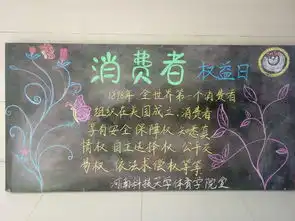 消费者 权益日
1898年 全世界第一个消费者
组织在美国成立,消费者
享有安全保障权 知悉真
情权 自主选择权 公平交
易权 依法求偿权等等
河南科技大学体育学院宣